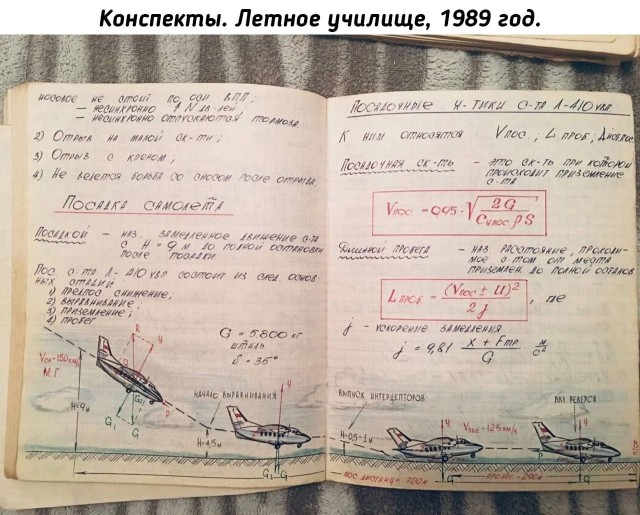 Конспекты. Летное училище, 1989 год.
носовое не стоит по оси ВПП;
— несинхронно ↑ N дв-лей
— несинхронно отпускаются тормоза.
2) Отрыв на малой ск-ти;
3) Отрыв с креном;
4) Не ведется борьба со сносом после отрыва.
Посадка самолета
Посадкой — наз. замедленное движение с-та
с H = 9 м до полной остановки
после посадки.
Пос. с-та Л-410 УВП состоит из след. основ-
ных стадий
1) предпос снижение;
2) выравнивание;
3) приземление;
4) пробег
G = 5.800 кг
штиль
δ = 35°
R
Q
Vсн=150км/ч
М.Г.
H=9м
G₁
G
P
начало выравнивания
H=4,5м
У
G₁
G
Посадочные х-тики с-та Л-410 УВП
К ним относятся Vпос.; L проб.;
Посадочная ск-ть — это ск-ть при которой
происходит приземление
с-та
Vпос = 0,95 · √ 2G / Cупос ρ S
Длинной пробега — наз. расстояние, проходи-
мое с-том от места
приземлен. до полной останов
L проб. = (Vпос ± U)² / 2j , где
j — ускорение замедления
j = 9,81 X + Fтр / G м/с²
выпуск интерцепторов
H=0,5-1м
У
Vпос=125км/ч
G
вкл реверса
У
G
пос дистанц = 700м
пробег = 240м